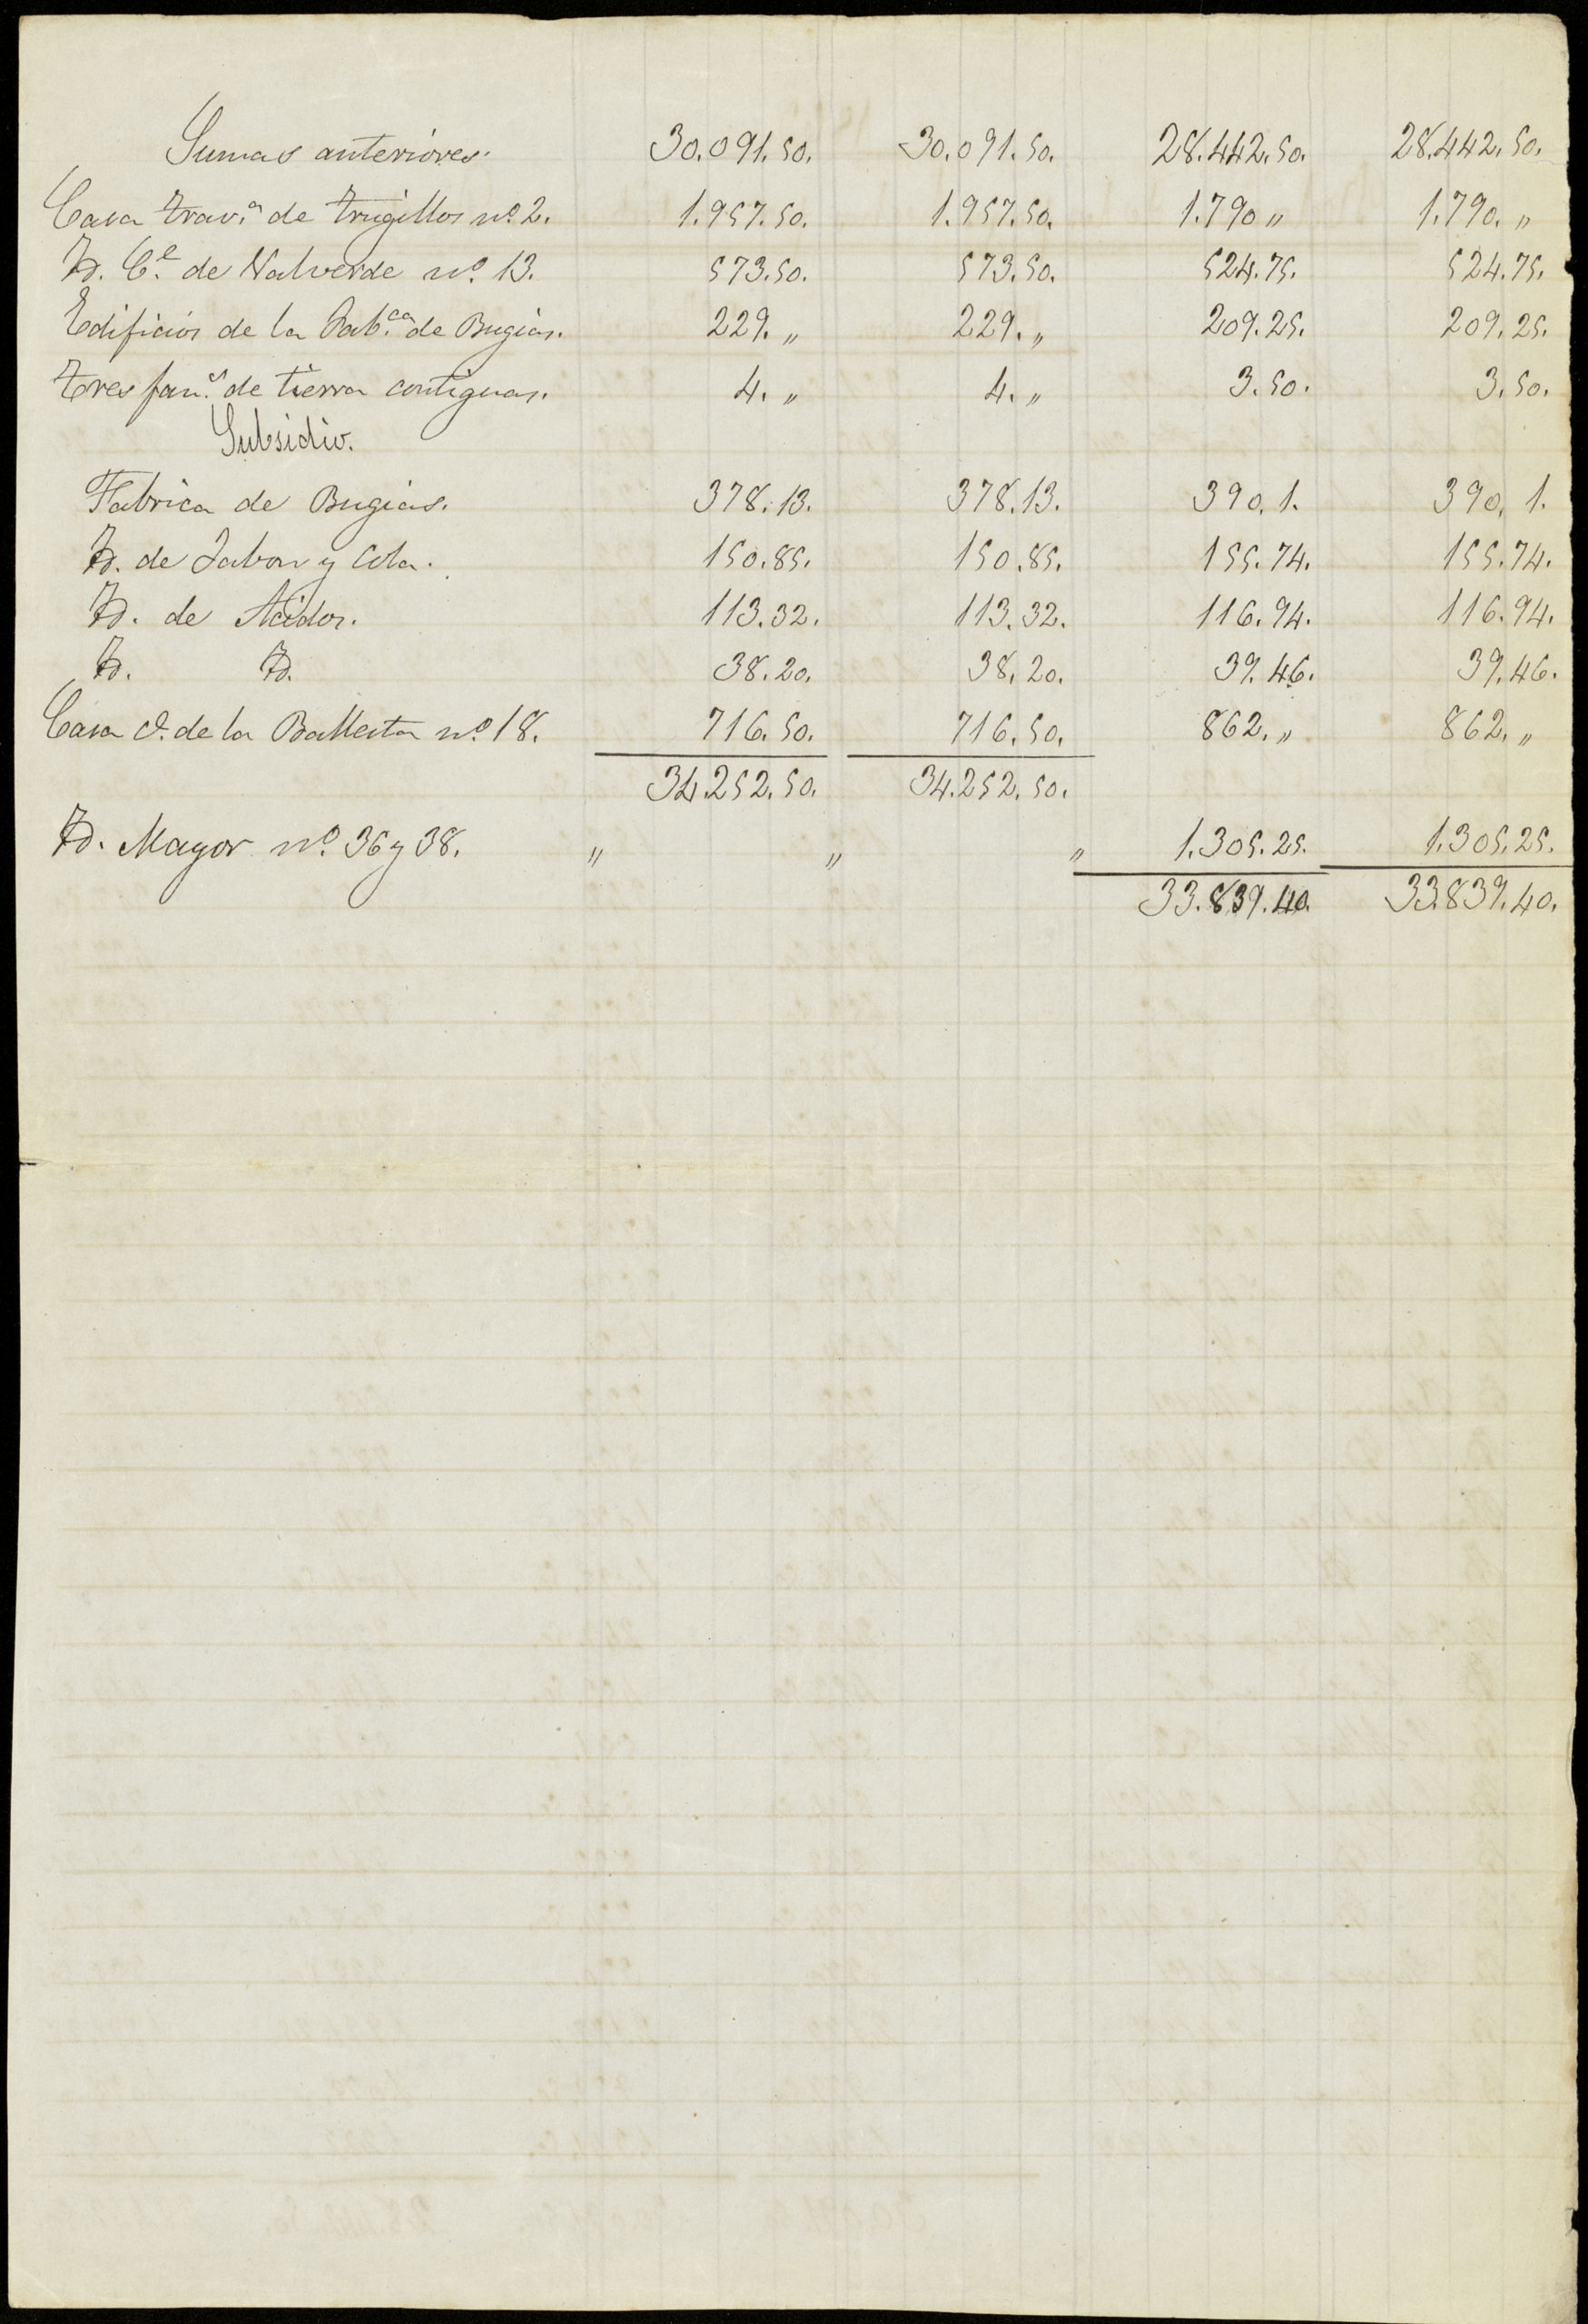 Sumas anteriores. 30.091.50. 30.091.50. 28.442.50. 28.442.50.
Casa trav.ª de trugillos nº 2. 1.957.50. 1.957.50. 1.790 „ 1.790. „
Yd. C.e de Valverde nº 13. 573.50. 573.50. 524.75. 524.75.
Edificios de la Fab.ca de Bugias. 229. „ 229. „ 209.25. 209.25.
tres fan.s de tierra contiguas. 4. „ 4. „ 3.50. 3.50.
Subsidio.
Fabrica de Bugias. 378.13. 378.13. 390.1. 390.1.
Yd. de Jabon y Cola. 150.85. 150.85. 155.74. 155.74.
Yd. de Acidos. 113.32. 113.32. 116.94. 116.94.
Yd. Yd. 38.20. 38.20. 39.46. 39.46.
Casa C. de la Ballesta nº 18. 716.50. 716.50. 862. „ 862. „
34.252.50. 34.252.50.
Yd. Mayor nº 36 y 38. „ „ „ 1.305.25. 1.305.25.
33.839.40. 33.839.40.